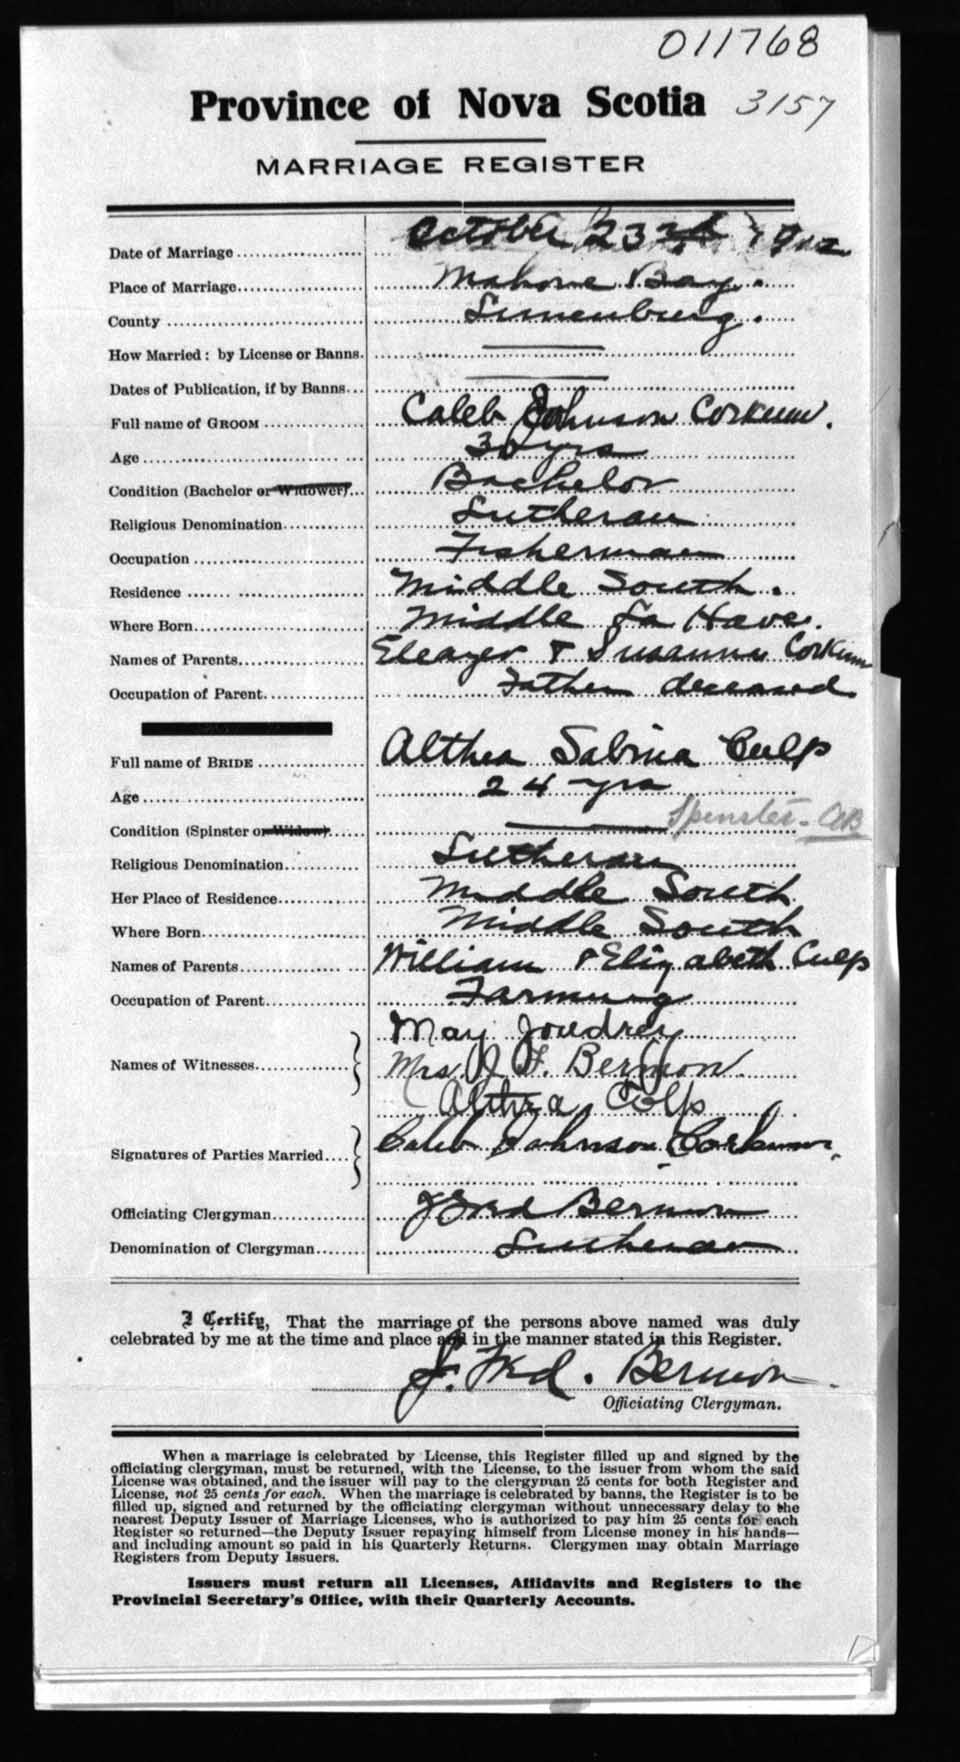 011768
Province of Nova Scotia 3157
MARRIAGE REGISTER
Date of Marriage October 23rd 1912
Place of Marriage Mahone Bay.
County Lunenburg.
How Married: by License or Banns.
Dates of Publication, if by Banns
Full name of GROOM Caleb Johnson Corkum.
Age 30 yrs
Condition (Bachelor or Widower) Bachelor
Religious Denomination Lutheran
Occupation Fisherman
Residence Middle South.
Where Born Middle La Have.
Names of Parents Eleazer & Susanna Corkum
Occupation of Parent Father deceased
Full name of BRIDE Althea Sabina Culp
Age 24 yrs
Condition (Spinster or Widow) Spinster
Religious Denomination Lutheran
Her Place of Residence Middle South
Where Born Middle South
Names of Parents William & Elizabeth Culp
Occupation of Parent Farming
May Joudrey
Names of Witnesses Mrs J. F. Bermon
Althea Colp
Signatures of Parties Married Caleb Johnson Corkum
Officiating Clergyman J Fred Bermon
Denomination of Clergyman Lutheran
I Certify, That the marriage of the persons above named was duly
celebrated by me at the time and place and in the manner stated in this Register.
J. Fred. Bermon
Officiating Clergyman.
When a marriage is celebrated by License, this Register filled up and signed by the
officiating clergyman, must be returned, with the License, to the issuer from whom the said
License was obtained, and the issuer will pay to the clergyman 25 cents for both Register and
License, not 25 cents for each. When the marriage is celebrated by banns, the Register is to be
filled up, signed and returned by the officiating clergyman without unnecessary delay to the
nearest Deputy Issuer of Marriage Licenses, who is authorized to pay him 25 cents for each
Register so returned—the Deputy Issuer repaying himself from License money in his hands—
and including amount so paid in his Quarterly Returns. Clergymen may obtain Marriage
Registers from Deputy Issuers.
Issuers must return all Licenses, Affidavits and Registers to the
Provincial Secretary's Office, with their Quarterly Accounts.